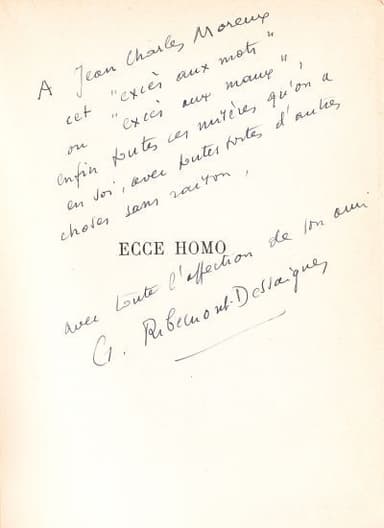 A Jean Charles Moreux
cet "excès aux mots"
ou "excès aux maux",
enfin toutes ces misères qu'on a
en soi, avec toutes sortes d'autres
choses sans raison,
ECCE HOMO
avec toute l'affection de son ami
G. Ribemont-Dessaignes